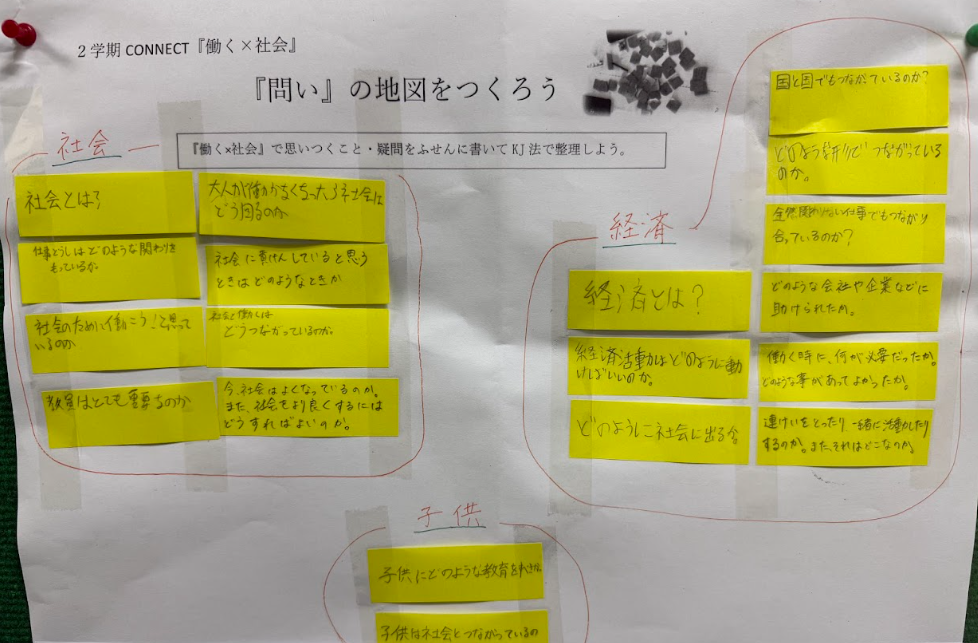 2学期 CONNECT『働く×社会』
『問い』の地図をつくろう
『働く×社会』で思いつくこと・疑問をふせんに書いて KJ 法で整理しよう。
社会
社会とは?
仕事どうしはどのような関わりを
もっているか。
社会のために働こう!と思って
いるのか
教員はとても重要なのか
大人が働かなくなったら社会は
どう困るのか
社会に貢けんしていると思う
ときはどのようなときか
社会と働くは
どうつながっているのか。
今、社会はよくなっているのか。
また、社会をより良くするには
どうすればよいのか。
経済
経済とは?
経済活動はどのように動
けばいいのか。
どのように社会に出る
国と国でもつながっているのか?
どのような形でつながっている
のか。
全然関わりない仕事でもつながり
合っているのか?
どのような会社や企業などに
助けられたか。
働く時に、何が必要だったか。
どのような事があってよかったか。
連けいをとったり一緒に活動したり
するのか。また、それはどこなのか。
子供
子供にどのような教育を
子供は社会とつながっているの